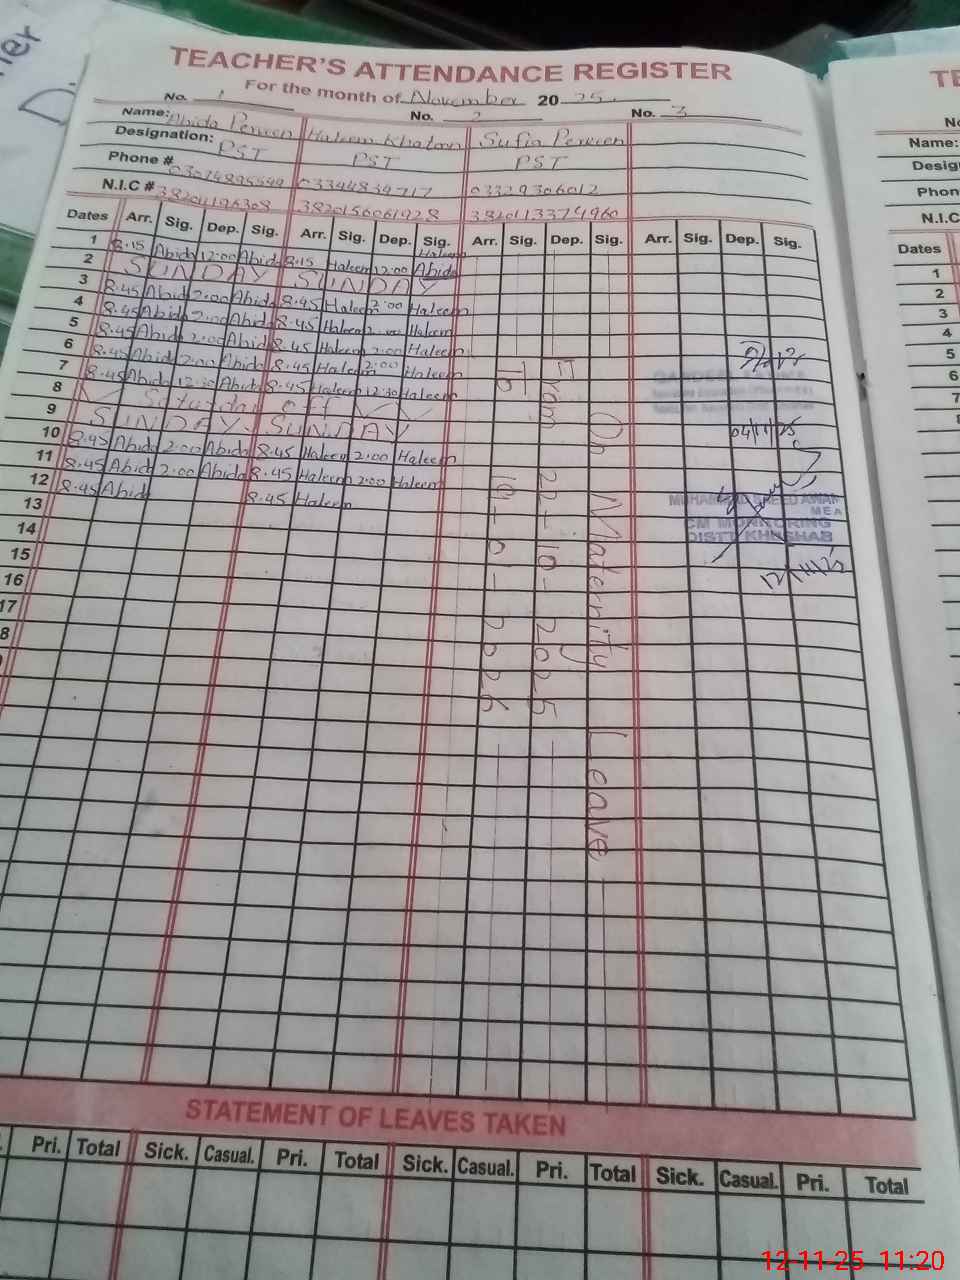 TEACHER'S ATTENDANCE REGISTER
For the month of November 20 25
No. 1 No. 2 No. 3
Name: Abida Perveen Haleem Khatoon Sufia Perveen
Designation: PST PST PST
Phone # 03344839717 03329306012
N.I.C # 3820156061928 3820113374960
Dates Arr. Sig. Dep. Sig. Arr. Sig. Dep. Sig. Arr. Sig. Dep. Sig. Arr. Sig. Dep. Sig.
1 8.15 Abida 12:00 Abida 8.15 Haleem 12:00 Haleem Abida
2 SUNDAY SUNDAY
3 8.45 Abida 2:00 Abida 8.45 Haleem 2:00 Haleem
4 8.45 Abida 2:00 Abida 8.45 Haleem 2:00 Haleem
5 8.45 Abida 2:00 Abida 8.45 Haleem 2:00 Haleem
6 8.45 Abida 2:00 Abida 8.45 Haleem 2:00 Haleem
7 8.45 Abida 12:30 Abida 8.45 Haleem 12:30 Haleem
8 Saturday off
9 SUNDAY SUNDAY
10 8.45 Abida 2:00 Abida 8.45 Haleem 2:00 Haleem
11 8.45 Abida 2:00 Abida 8.45 Haleem 2:00 Haleem
12 8.45 Abida 8.45 Haleem
13
14
15
16
17
8
On Maternity Leave
From 22-10-2025
To 19-01-2026
04/11/25
MEA
CM MONITORING
DISTT KHUSHAB
12/11/25
STATEMENT OF LEAVES TAKEN
Pri. Total Sick. Casual. Pri. Total Sick. Casual. Pri. Total Sick. Casual. Pri. Total
TE
No
Name:
Desig
Phon
N.I.C
Dates
1
2
3
4
5
6
7
8
9
10
11
12
13
14
15
16
12-11-25 11:20